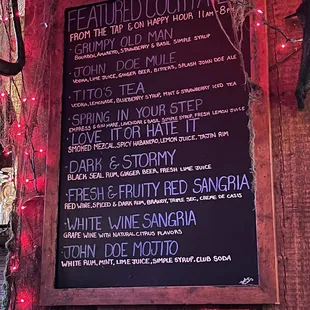 FEATURED COCKTA
FROM THE TAP & ON HAPPY HOUR 11AM-8PM
GRUMPY OLD MAN
BOURBON, AMARETO, STRAWBERRY & BASIL SIMPLE SYRUP
JOHN DOE MULE
VODKA, LIME JUICE, GINGER BEER, BITTERS, SPLASH JOHN DOE ALE
TITO'S TEA
VODKA, LEMONADE, BLUEBERRY SYRUP, MINT & STRAWBERRY ICED TEA
SPRING IN YOUR STEP
EMPRESS & GIN MARE, LAVENDER & BASIL SIMPLE SYRUP, FRESH LEMON JUICE
LOVE IT OR HATE IT
SMOKED MEZCAL, SPICY HABANERO, LEMON JUICE, TAJIN RIM
DARK & STORMY
BLACK SEAL RUM, GINGER BEER, FRESH LIME JUICE
FRESH & FRUITY RED SANGRIA
RED WINE, SPICED & DARK RUM, BRANDY, TRIPLE SEC, CREME DE CASIS
WHITE WINE SANGRIA
GRAPE WINE WITH NATURAL CITRUS FLAVORS
JOHN DOE MOJITO
WHITE RUM, MINT, LIME JUICE, SIMPLE SYRUP, CLUB SODA